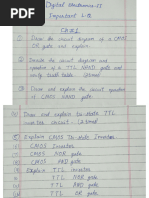 Digital electronics-II
Important L.Q
CH:01
1) Draw the circuit diagram of a CMOS
OR gate and explain.
2) Draw the circuit diagram and
operation of a TTL NAND gate and
verify truth table
3) Draw and explain the circuit operation
of CMOS NAND gate
Draw and explain to state TTL
inverter circuit.
Explain CMOS Tri state Inverter
CMOS Inverter
CMOS NOR gate
CMOS AND gate
Explain TTL inverter
TTL NOR gate
TTL AND gate
TTL OR gate